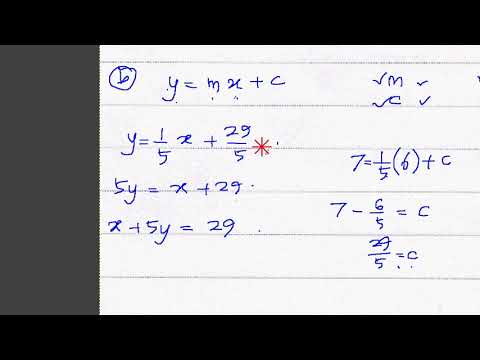 (b) y = mx + c
✓m ✓
✓c ✓
y = 1/5 x + 29/5
5y = x + 29.
x + 5y = 29.
7 = 1/5 (6) + c
7 - 6/5 = c
29/5 = c